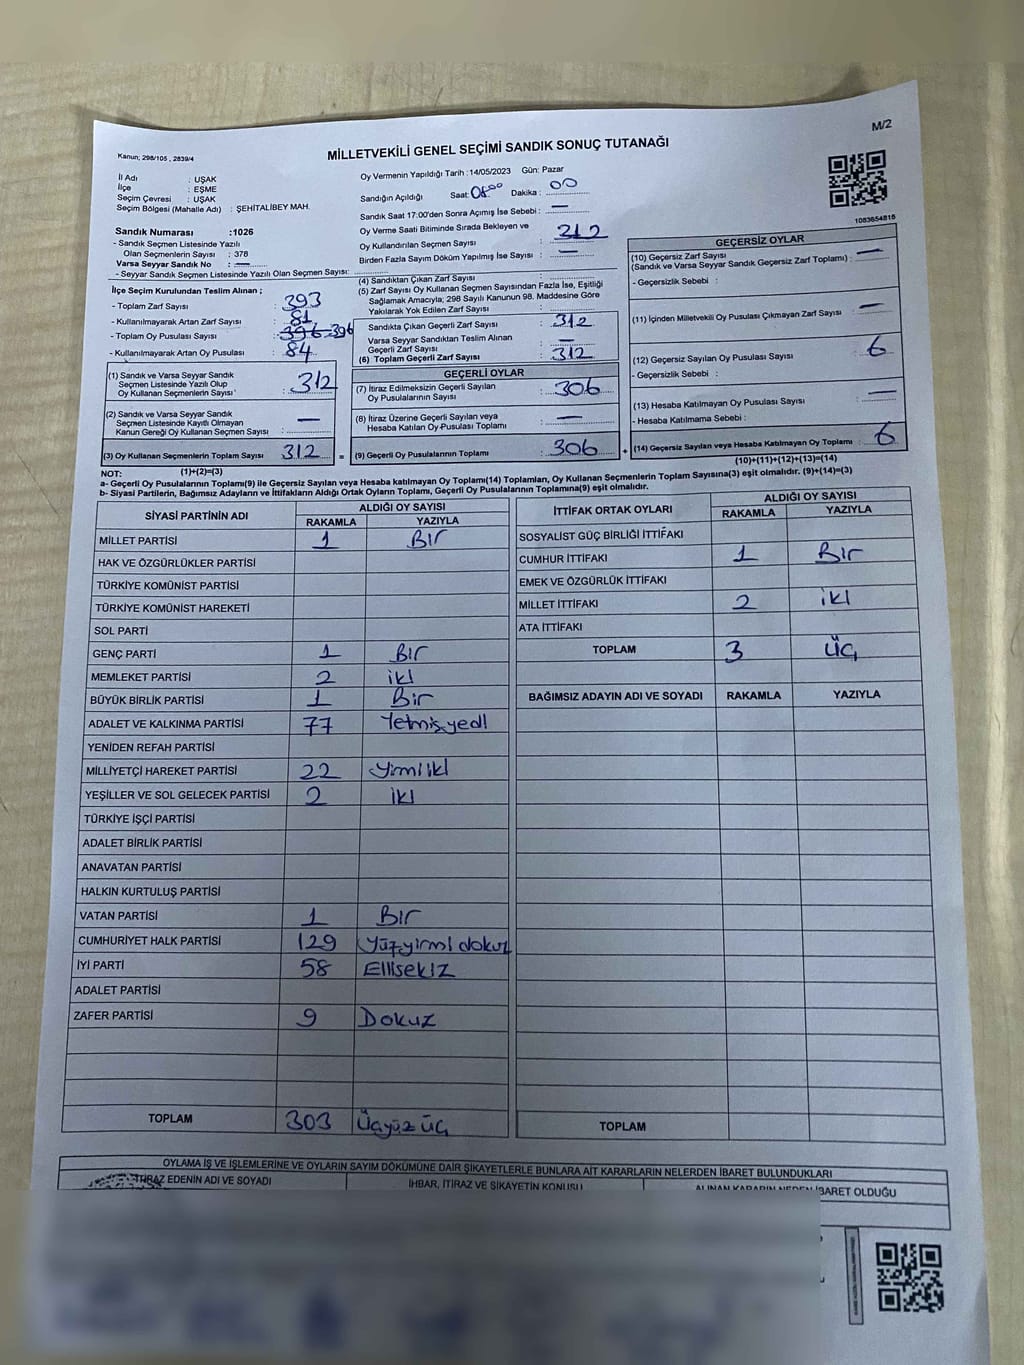 M/2
Kanun; 298/105 , 2839/4
MİLLETVEKİLİ GENEL SEÇİMİ SANDIK SONUÇ TUTANAĞI
İl Adı : UŞAK
İlçe : EŞME
Seçim Çevresi : UŞAK
Seçim Bölgesi (Mahalle Adı) : ŞEHİTALİBEY MAH.
Sandık Numarası :1026
- Sandık Seçmen Listesinde Yazılı
Olan Seçmenlerin Sayısı : 378
Varsa Seyyar Sandık No : —
- Seyyar Sandık Seçmen Listesinde Yazılı Olan Seçmen Sayısı:
Oy Vermenin Yapıldığı Tarih : 14/05/2023 Gün: Pazar
Sandığın Açıldığı Saat: 08⁰⁰ Dakika : 00
Sandık Saat 17:00'den Sonra Açımış İse Sebebi : —
Oy Verme Saati Bitiminde Sırada Bekleyen ve
Oy Kullandırılan Seçmen Sayısı : 312
Birden Fazla Sayım Döküm Yapılmış İse Sayısı : —
1083654816
İlçe Seçim Kurulundan Teslim Alınan ;
- Toplam Zarf Sayısı : 393
- Kullanılmayarak Artan Zarf Sayısı : 81
- Toplam Oy Pusulası Sayısı : 396-396
- Kullanılmayarak Artan Oy Pusulası : 84
(1) Sandık ve Varsa Seyyar Sandık
Seçmen Listesinde Yazılı Olup
Oy Kullanan Seçmenlerin Sayısı : 312
(2) Sandık ve Varsa Seyyar Sandık
Seçmen Listesinde Kayıtlı Olmayan
Kanun Gereği Oy Kullanan Seçmen Sayısı : —
(3) Oy Kullanan Seçmenlerin Toplam Sayısı : 312 =
(4) Sandıktan Çıkan Zarf Sayısı :
(5) Zarf Sayısı Oy Kullanan Seçmen Sayısından Fazla İse, Eşitliği
Sağlamak Amacıyla; 298 Sayılı Kanunun 98. Maddesine Göre
Yakılarak Yok Edilen Zarf Sayısı :
Sandıkta Çıkan Geçerli Zarf Sayısı : 312
Varsa Seyyar Sandıktan Teslim Alınan
Geçerli Zarf Sayısı : —
(6) Toplam Geçerli Zarf Sayısı : 312
GEÇERLİ OYLAR
(7) İtiraz Edilmeksizin Geçerli Sayılan
Oy Pusulalarının Sayısı : 306
(8) İtiraz Üzerine Geçerli Sayılan veya
Hesaba Katılan Oy Pusulası Toplamı : —
(9) Geçerli Oy Pusulalarının Toplamı : 306 +
GEÇERSİZ OYLAR
(10) Geçersiz Zarf Sayısı
(Sandık ve Varsa Seyyar Sandık Geçersiz Zarf Toplamı) : —
- Geçersizlik Sebebi :
(11) İçinden Milletvekili Oy Pusulası Çıkmayan Zarf Sayısı : —
(12) Geçersiz Sayılan Oy Pusulası Sayısı : 6
- Geçersizlik Sebebi :
(13) Hesaba Katılmayan Oy Pusulası Sayısı : —
- Hesaba Katılmama Sebebi :
(14) Geçersiz Sayılan veya Hesaba Katılmayan Oy Toplamı : 6
NOT: (1)+(2)=(3) (10)+(11)+(12)+(13)=(14)
a- Geçerli Oy Pusulalarının Toplamı(9) ile Geçersiz Sayılan veya Hesaba katılmayan Oy Toplamı(14) Toplamları, Oy Kullanan Seçmenlerin Toplam Sayısına(3) eşit olmalıdır. (9)+(14)=(3)
b- Siyasi Partilerin, Bağımsız Adayların ve İttifakların Aldığı Ortak Oyların Toplamı, Geçerli Oy Pusulalarının Toplamına(9) eşit olmalıdır.
SİYASİ PARTİNİN ADI ALDIĞI OY SAYISI
RAKAMLA YAZIYLA
MİLLET PARTİSİ 1 Bir
HAK VE ÖZGÜRLÜKLER PARTİSİ
TÜRKİYE KOMÜNİST PARTİSİ
TÜRKİYE KOMÜNİST HAREKETİ
SOL PARTİ
GENÇ PARTİ 1 Bir
MEMLEKET PARTİSİ 2 iki
BÜYÜK BİRLİK PARTİSİ 1 Bir
ADALET VE KALKINMA PARTİSİ 77 Yetmişyedi
YENİDEN REFAH PARTİSİ
MİLLİYETÇİ HAREKET PARTİSİ 22 Yirmiiki
YEŞİLLER VE SOL GELECEK PARTİSİ 2 iki
TÜRKİYE İŞÇİ PARTİSİ
ADALET BİRLİK PARTİSİ
ANAVATAN PARTİSİ
HALKIN KURTULUŞ PARTİSİ
VATAN PARTİSİ 1 Bir
CUMHURİYET HALK PARTİSİ 129 Yüzyirmi dokuz
İYİ PARTİ 58 Ellisekiz
ADALET PARTİSİ
ZAFER PARTİSİ 9 Dokuz
TOPLAM 303 Üçyüz üç
İTTİFAK ORTAK OYLARI ALDIĞI OY SAYISI
RAKAMLA YAZIYLA
SOSYALİST GÜÇ BİRLİĞİ İTTİFAKI
CUMHUR İTTİFAKI 1 Bir
EMEK VE ÖZGÜRLÜK İTTİFAKI
MİLLET İTTİFAKI 2 iki
ATA İTTİFAKI
TOPLAM 3 Üç
BAĞIMSIZ ADAYIN ADI VE SOYADI RAKAMLA YAZIYLA
TOPLAM
OYLAMA İŞ VE İŞLEMLERİNE VE OYLARIN SAYIM DÖKÜMÜNE DAİR ŞİKAYETLERLE BUNLARA AİT KARARLARIN NELERDEN İBARET BULUNDUKLARI
İTİRAZ EDENİN ADI VE SOYADI İHBAR, İTİRAZ VE ŞİKAYETİN KONUSU ALINAN KARARIN NEDEN İBARET OLDUĞU